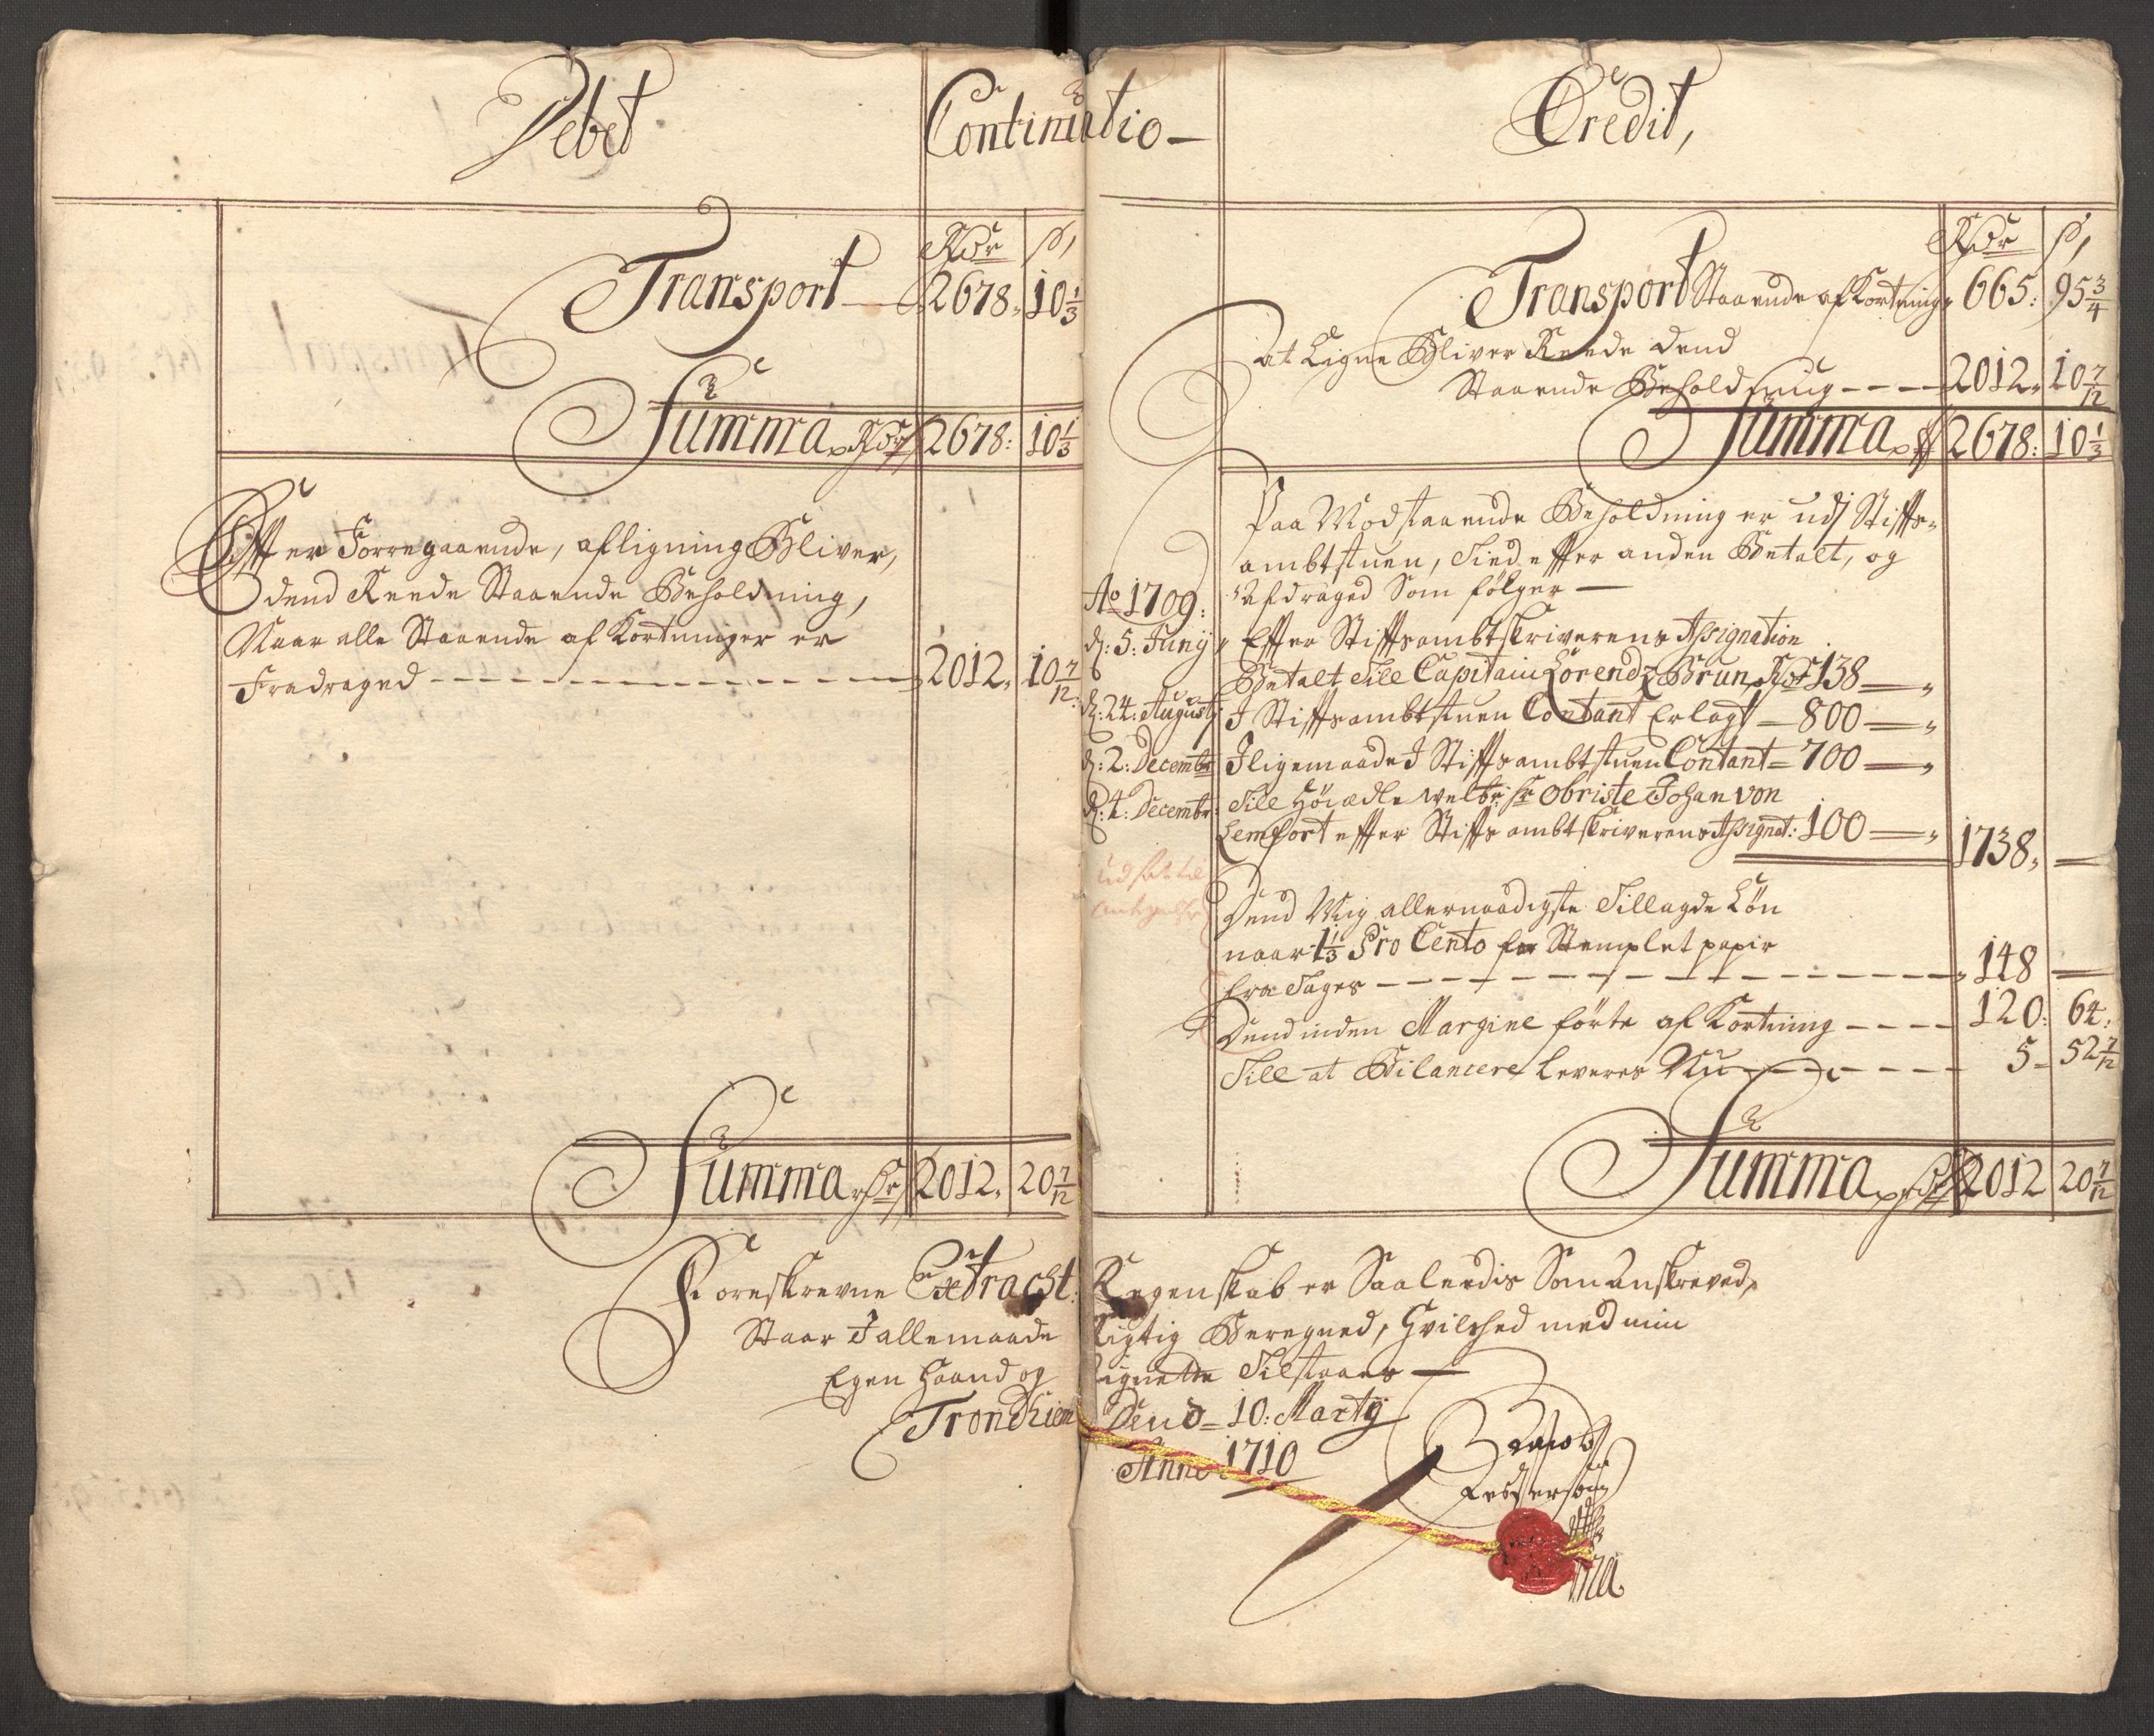 Debet
Continuatio
Credit,
Rdr ß,
Transport 2678. 10 1/3
Summa Rdr 2678: 10 1/3
Effter Forregaaende, afligning Bliver,
dend Reede Staaende Beholdning,
Naar alle Staaende af Kortninger er
Fradraged 2012. 10 7/12.
Summa Rdr 2012. 20 7/12
Rdr ß,
Transport Staaende af Kortning 665: 95 3/4
at Ligne Bliver Reede dend
Staaende Beholdning 2012. 10 7/12
Summa 2678: 10 1/3
Paa Modstaaende Beholdning er udj Stiffts-
ambtstuen, Tied effter anden Betalt, og
Afdraged Som følger
Ao 1709:
d: 5: Junÿ Effter Stifftsambtskriverens Assignation
Betalt Till Capitain Lorendz Brun, Rdr 138
d: 24: Augustj I Stifftsambtstuen Contant Erlagt 800
d: 2: Decembr Iligemaade I Stifftsambtstuen Contant 700
d: 4: Decembr: Till Höiædle welbr: hr Obriste Johan von
Lemfort effter Stifftsambtskriverens Assignat: 100
1738.
Dend Mig allernaadigste Tillagde Løn
naar 1 1/3 Pro Cento for Stemplet papir
fra Tages 148
Dend inden Margine förte af Kortning 120: 64:
Till at Bilancere Leveres Nu 5 52 7/12
Summa Rdr 2012 20 7/12
Foreskrevne Extracht: Regenskab er Saaledis Som Anskreved,
Staar I allemaade Rigtig Beregned, Hvilched med min
Egen Haand og Signette Tilstaaes
Trondhiem Dend 10: Martÿ
Anno 1710